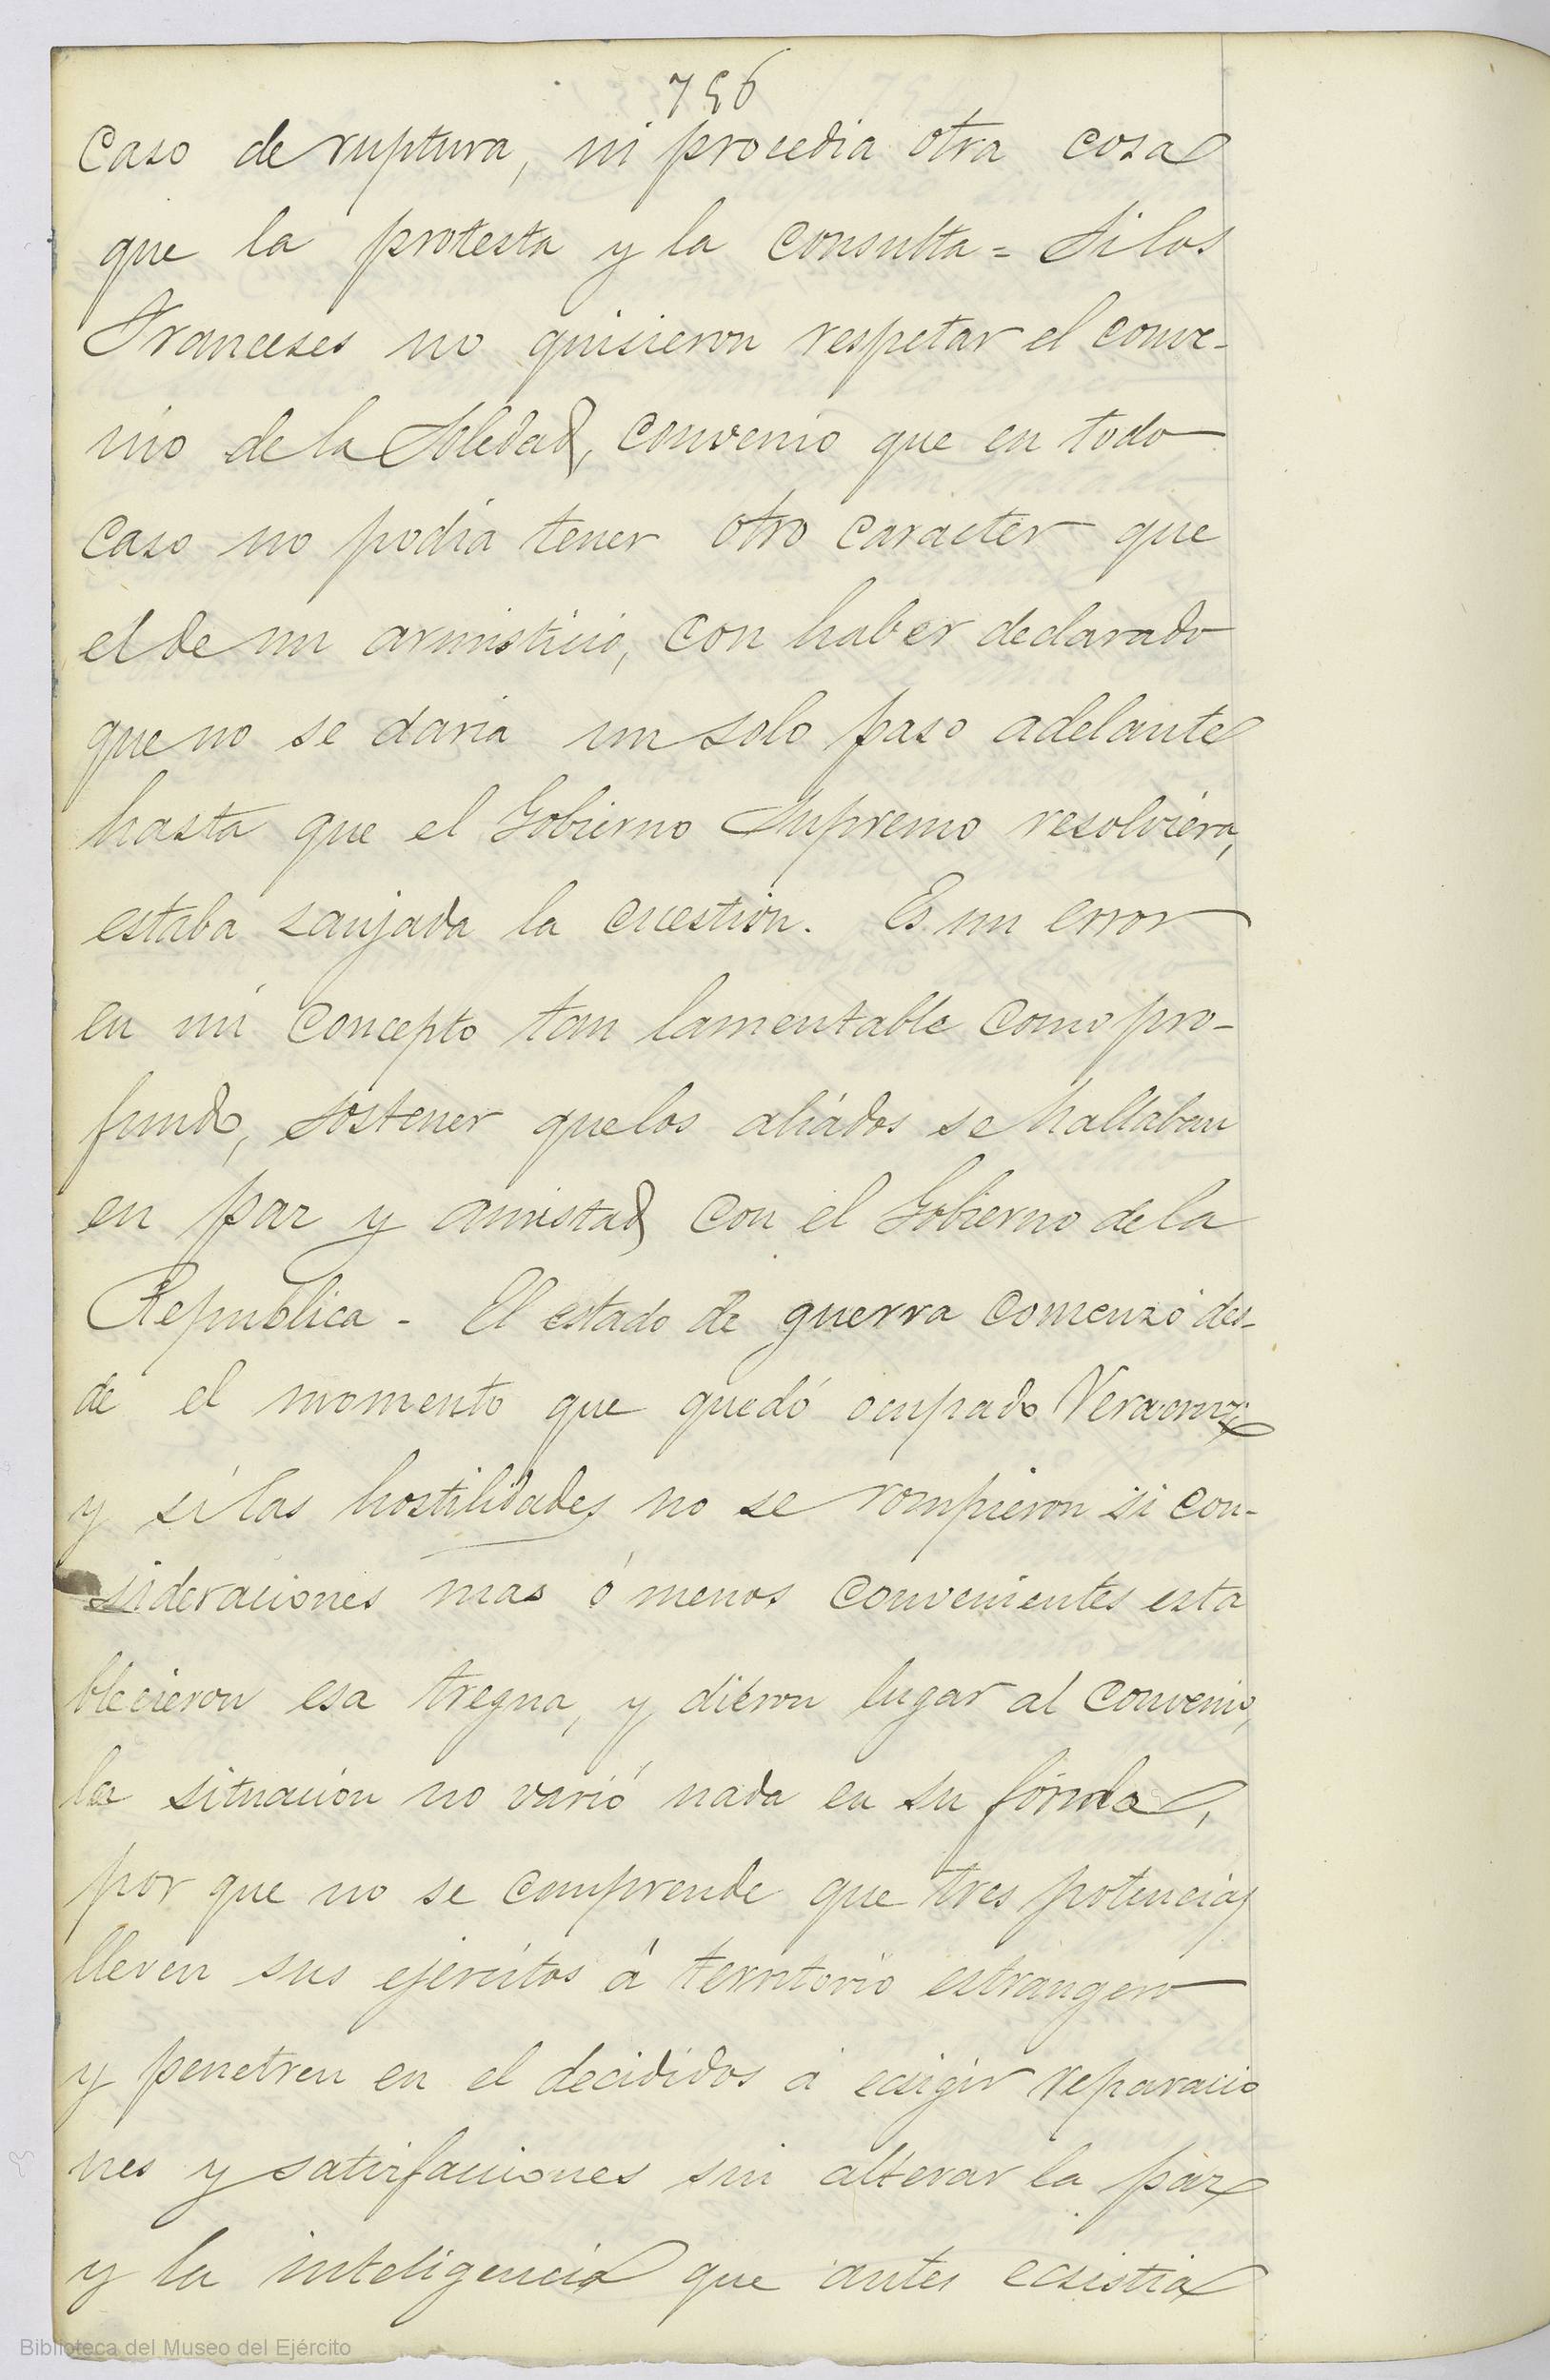 756
caso de ruptura, ni procedia otra cosa
que la protesta y la consulta = Si los
Franceses no quisieron respetar el conve-
nio de la Soledad, convenio que en todo
caso no podia tener otro caracter que
el de un armisticio, con haber declarado
que no se daria un solo paso adelante
hasta que el Gobierno Supremo resolviera,
estaba zanjada la cuestion. Es un error
en mi concepto tan lamentable como pro-
fundo, sostener que los aliádos se hallaban
en paz y amistad con el Gobierno de la
Republica - El estado de guerra comenzó des-
de el momento que quedó ocupado Veracruz
y si las hostilidades no se rompieron si con-
sideraciones mas ó menos convenientes esta
blecieron esa tregua, y diéron lugar al convenio,
la situacion no varió nada en su fónda,
por que no se comprende que tres potencias
lleven sus ejercitos á territorio estrangero
y penetren en el decididos á ecsigir reparacio
nes y satisfacciones sin alterar la paz
y la inteligencia que antes ecsistia
Biblioteca del Museo del Ejército